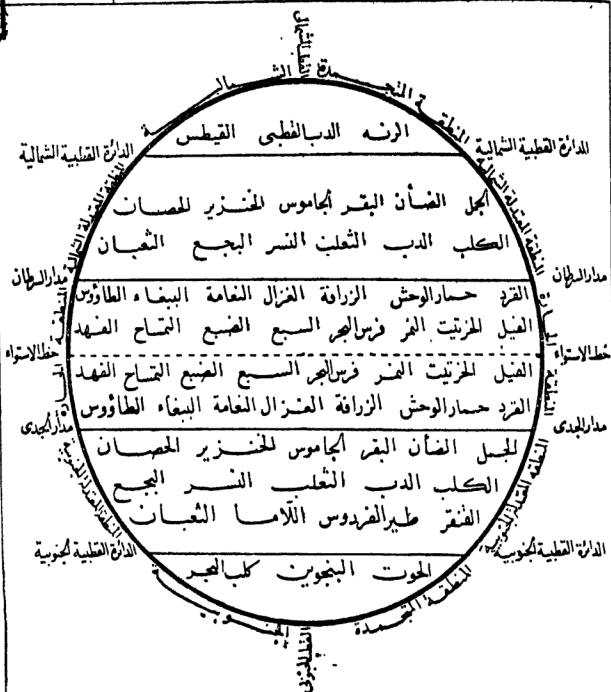 القطب الشمالى
المنطقة المتجمدة الشمالية
الدائرة القطبية الشمالية
الدائرة القطبية الشمالية
الرنه الدب القطبى القيطس
المنطقة المعتدلة الشمالية
المنطقة المعتدلة الشمالية
الجمل الضأن البقر الجاموس الخنزير الحصان
الكلب الدب الثعلب النسر البجع الثعبان
مدار السرطان
مدار السرطان
القرد حمار الوحش الزرافة الغزال النعامة الببغاء الطاؤوس
الفيل الخرتيت النمر فرس البحر السبع الضبع التمساح الفهد
المنطقة الحارة
المنطقة الحارة
خط الاستواء
خط الاستواء
الفيل الخرتيت النمر فرس البحر السبع الضبع التمساح الفهد
القرد حمار الوحش الزرافة الغزال النعامة الببغاء الطاؤوس
مدار الجدى
مدار الجدى
الجمل الضأن البقر الجاموس الخنزير الحصان
الكلب الدب الثعلب النسر البجع
القنقر طير الفردوس اللاما الثعبان
المنطقة المعتدلة الجنوبية
المنطقة المعتدلة الجنوبية
الدائرة القطبية الجنوبية
الدائرة القطبية الجنوبية
الحوت البنجوين كلب البحر
المنطقة المتجمدة الجنوبية
القطب الجنوبى